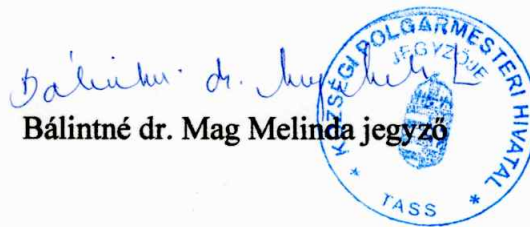 Bálintné dr. Mag Melinda
Bálintné dr. Mag Melinda jegyző
KÖZSÉGI POLGÁRMESTERI HIVATAL
JEGYZŐJE
* TASS *